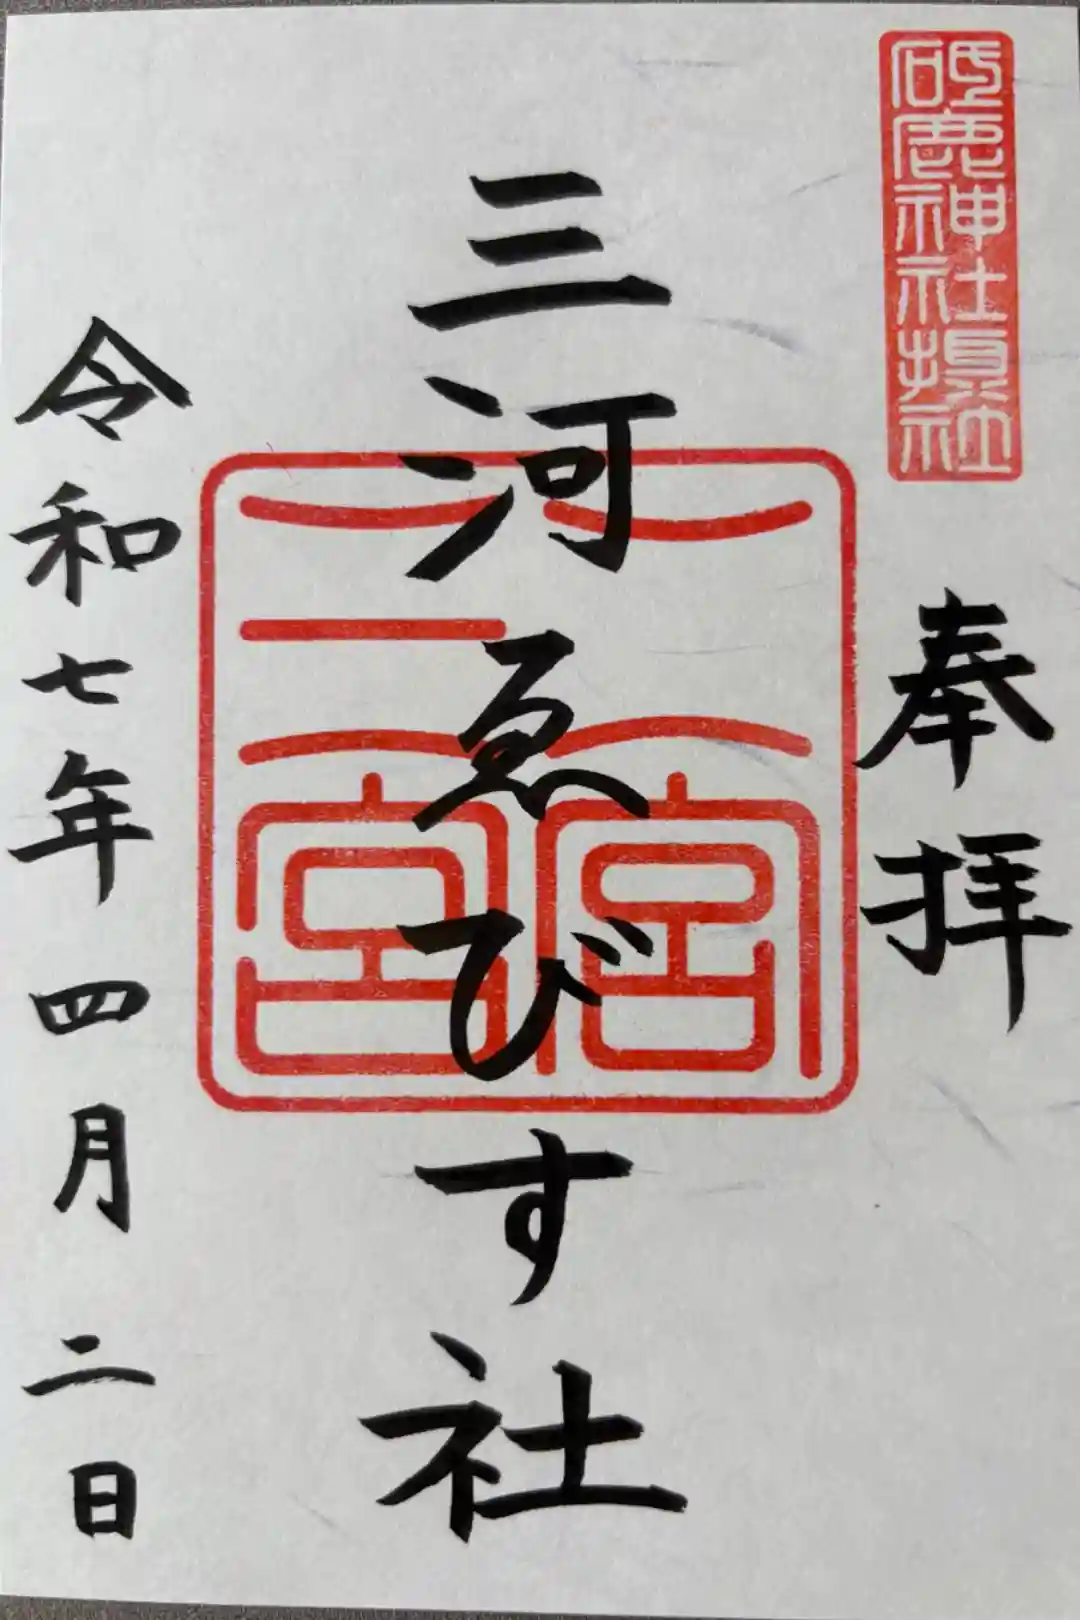 砥鹿神社摂社
奉拝
三河ゑびす社
令和七年四月二日